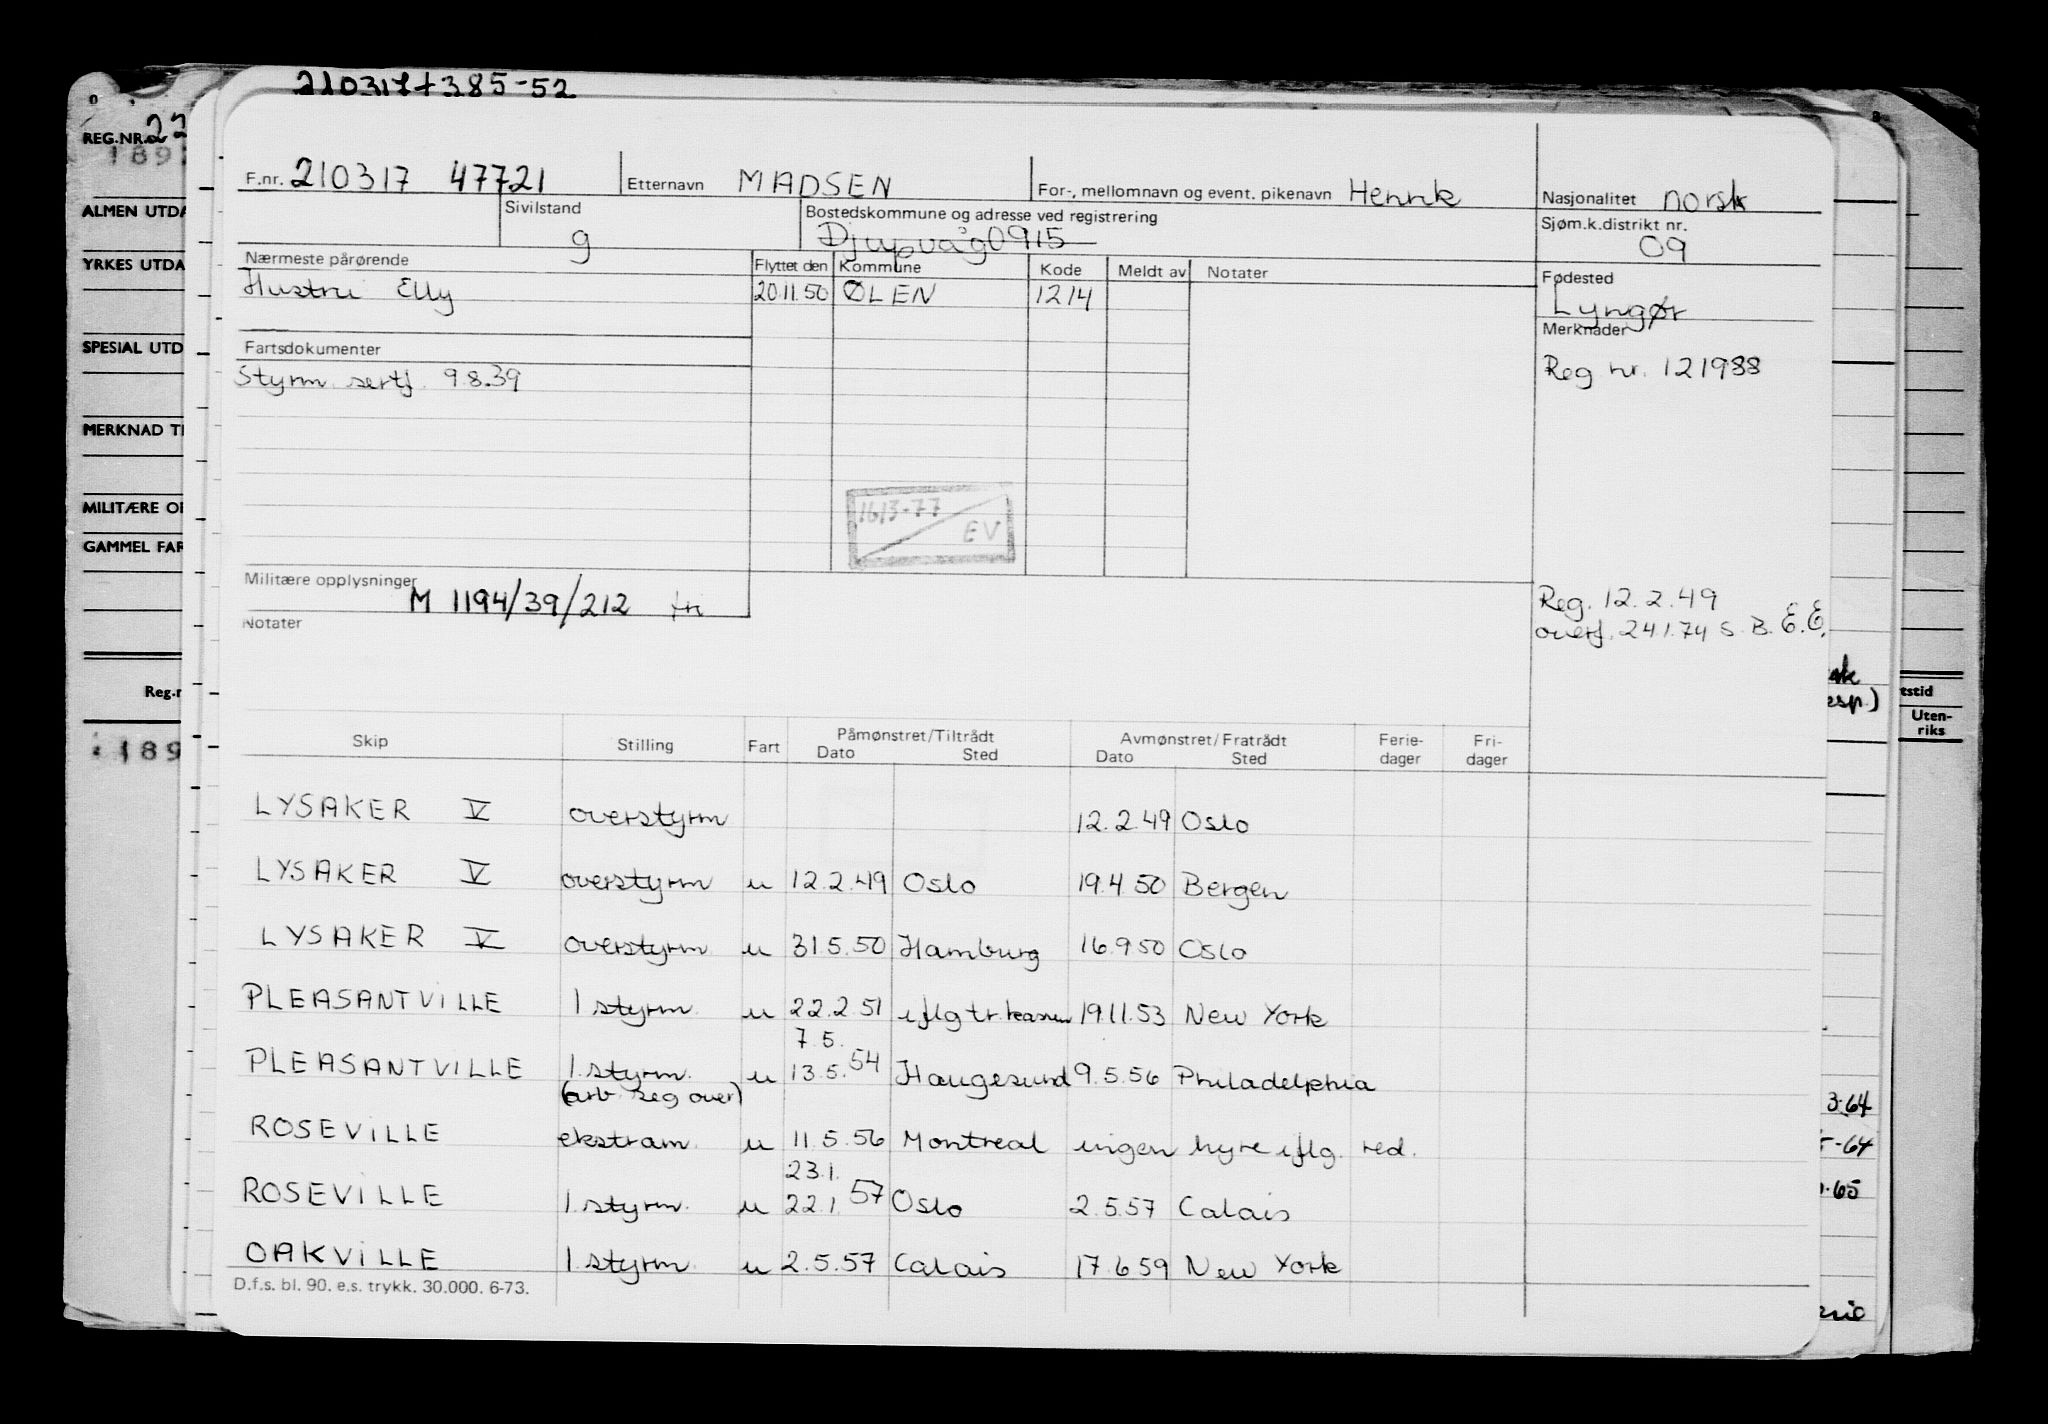 210317+385-52
REG.NR. 22
189
F.nr. 210317 47721 Etternavn MADSEN For-, mellomnavn og event. pikenavn Henrik Nasjonalitet norsk
ALMEN UTDA
Sivilstand g Bostedskommune og adresse ved registrering Djupvåg 0915 Sjøm.k.distrikt nr. 09
YRKES UTDA
Nærmeste pårørende Flyttet den Kommune Kode Meldt av Notater Fødested
Hustru Elly 20.11.50 ØLEN 1214 Lyngør
Merknader
SPESIAL UTD
Fartsdokumenter
Styrm. sertf. 9.8.39 Reg nr. 121988
MERKNAD TI
MILITÆRE OP
GAMMEL FAR
16/3-77
EV
Militære opplysninger M 1194/39/212
Notater
Reg. 12.2.49
overf. 24.1.74 S.B. E.E.
Reg.n
189
esp.)
tstid
Uten-
riks
Skip Stilling Fart Påmønstret/Tiltrådt Avmønstret/Fratrådt Ferie- Fri-
Dato Sted Dato Sted dager dager
LYSAKER V overstyrm 12.2.49 Oslo
LYSAKER V overstyrm u 12.2.49 Oslo 19.4.50 Bergen
LYSAKER V overstyrm. u 31.5.50 Hamburg 16.9.50 Oslo
PLEASANTVILLE 1 styrm. u 22.2.51 iflg tr. kassen 19.11.53 New York
7.5.
PLEASANTVILLE 1. styrm. u 13.5.54 Haugesund 9.5.56 Philadelphia
(arb. seg over)
3-64
ROSEVILLE ekstram. u 11.5.56 Montreal ingen hyre iflg. red.
-64
23.1.
ROSEVILLE 1. styrm. u 22.1.57 Oslo 2.5.57 Calais
.65
OAKVILLE 1. styrm. u 2.5.57 Calais 17.6.59 New York
D.f.s. bl. 90. e.s. trykk. 30.000. 6-73.